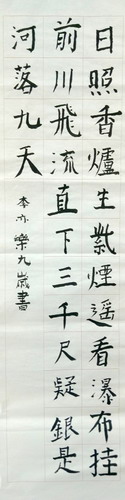 日照香爐生紫煙遥看瀑布挂
前川飛流直下三千尺疑銀是
河落九天
李亦樂九歲書